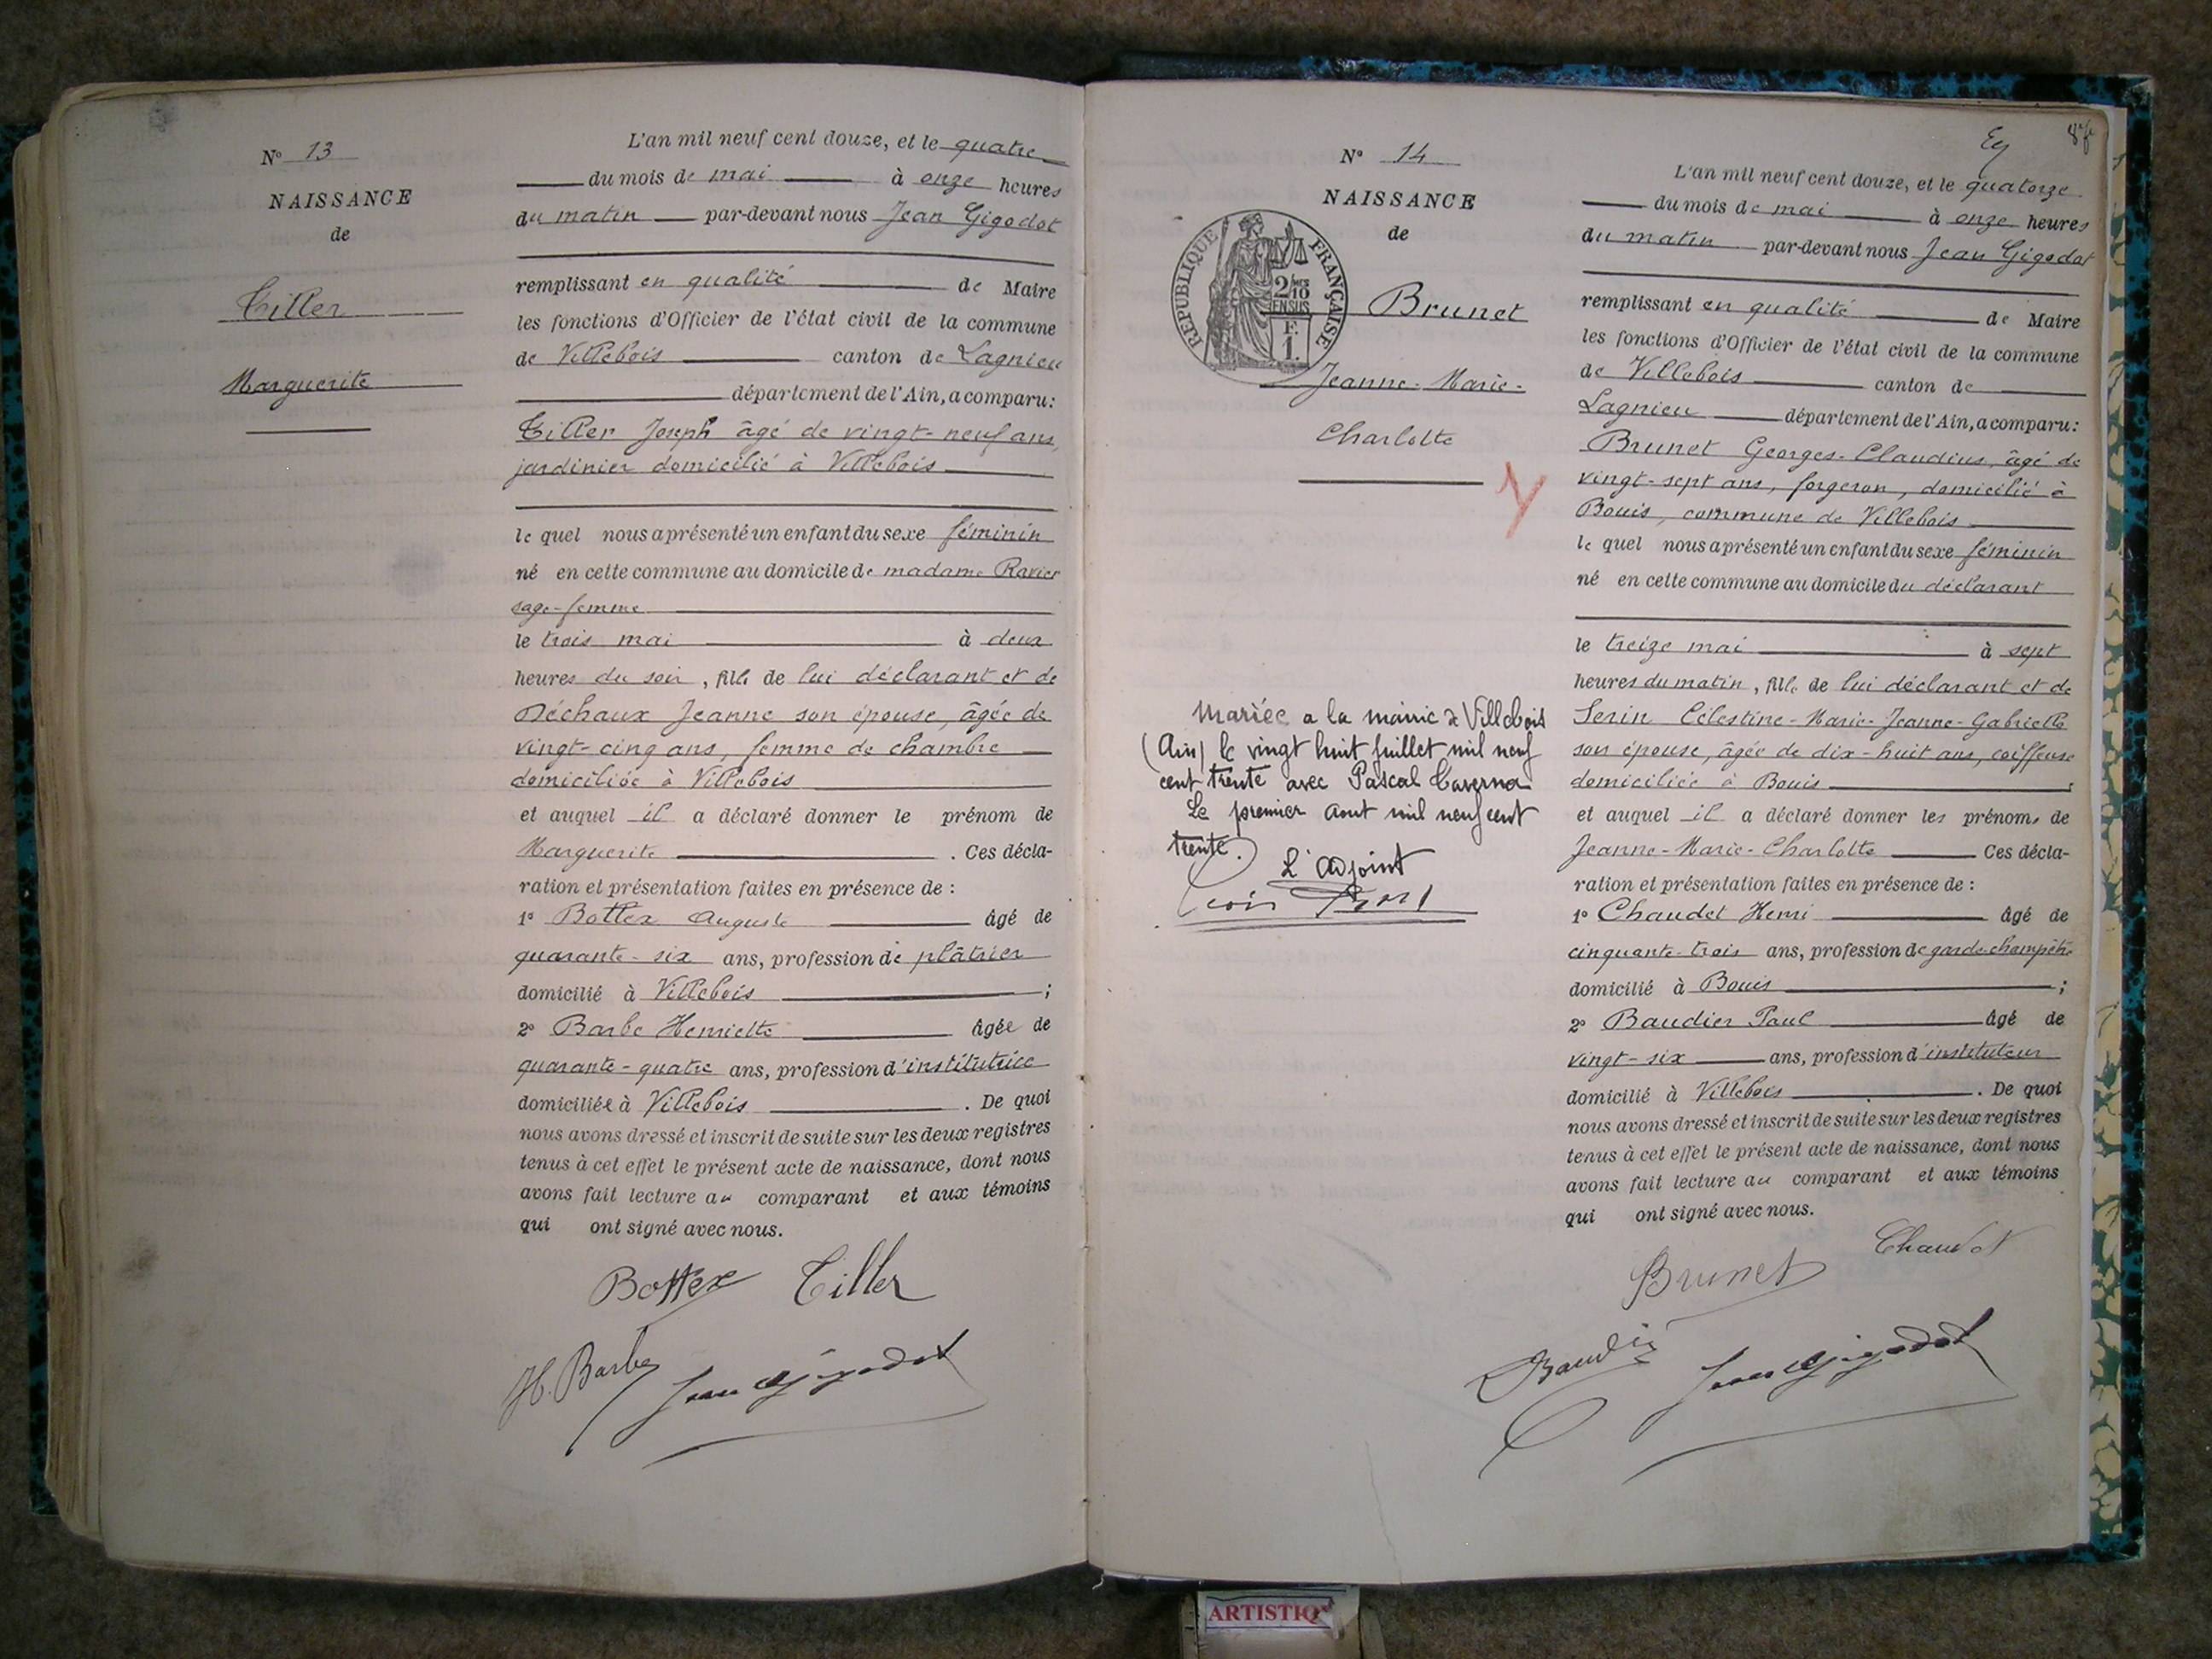 N° 13
NAISSANCE
de
Tiller
Marguerite
L'an mil neuf cent douze, et le quatre
du mois de mai à onze heures
du matin par-devant nous Jean Gigodot
remplissant en qualité de Maire
les fonctions d'Officier de l'état civil de la commune
de Villebois canton de Lagnieu
département de l'Ain, a comparu:
Tiller Joseph âgé de vingt-neuf ans,
jardinier domicilié à Villebois
le quel nous a présenté un enfant du sexe féminin
né en cette commune au domicile de madame Ravier
sage-femme
le trois mai à deux
heures du soir, fille de lui déclarant et de
Déchaux Jeanne son épouse, âgée de
vingt-cinq ans, femme de chambre
domiciliée à Villebois
et auquel il a déclaré donner le prénom de
Marguerite . Ces décla-
ration et présentation faites en présence de :
1° Bottex Auguste âgé de
quarante-six ans, profession de plâtrier
domicilié à Villebois ;
2° Barbe Henriette âgée de
quarante-quatre ans, profession d'institutrice
domiciliée à Villebois . De quoi
nous avons dressé et inscrit de suite sur les deux registres
tenus à cet effet le présent acte de naissance, dont nous
avons fait lecture au comparant et aux témoins
qui ont signé avec nous.
Bottex Tiller
H. Barbe Jean Gigodot
N° 14
NAISSANCE
de
REPUBLIQUE FRANÇAISE
2/10
EN SUS
F.
1.
Brunet
Jeanne-Marie-
Charlotte
Mariée a la mairie de Villebois
(Ain) le vingt huit juillet mil neuf
cent trente avec Pascal Taverna
Le premier aout mil neuf cent
trente.
L'adjoint
L'an mil neuf cent douze, et le quatorze
du mois de mai à onze heures
du matin par-devant nous Jean Gigodot
remplissant en qualité de Maire
les fonctions d'Officier de l'état civil de la commune
de Villebois canton de
Lagnieu département de l'Ain, a comparu:
Brunet Georges-Claudius, âgé de
vingt-sept ans, forgeron, domicilié à
Bouis, commune de Villebois
le quel nous a présenté un enfant du sexe féminin
né en cette commune au domicile du déclarant
le treize mai à sept
heures du matin, fille de lui déclarant et de
Serin Célestine-Marie-Jeanne-Gabrielle
son épouse, âgée de dix-huit ans, coiffeuse
domiciliée à Bouis ;
et auquel il a déclaré donner les prénoms de
Jeanne-Marie-Charlotte Ces décla-
ration et présentation faites en présence de :
1° Chaudet Henri âgé de
cinquante-trois ans, profession de garde-champêtre
domicilié à Bouis ;
2° Baudier Paul âgé de
vingt-six ans, profession d'instituteur
domicilié à Villebois . De quoi
nous avons dressé et inscrit de suite sur les deux registres
tenus à cet effet le présent acte de naissance, dont nous
avons fait lecture au comparant et aux témoins
qui ont signé avec nous.
Chaudet
Brunet
Baudier Jean Gigodot
ARTISTIQ